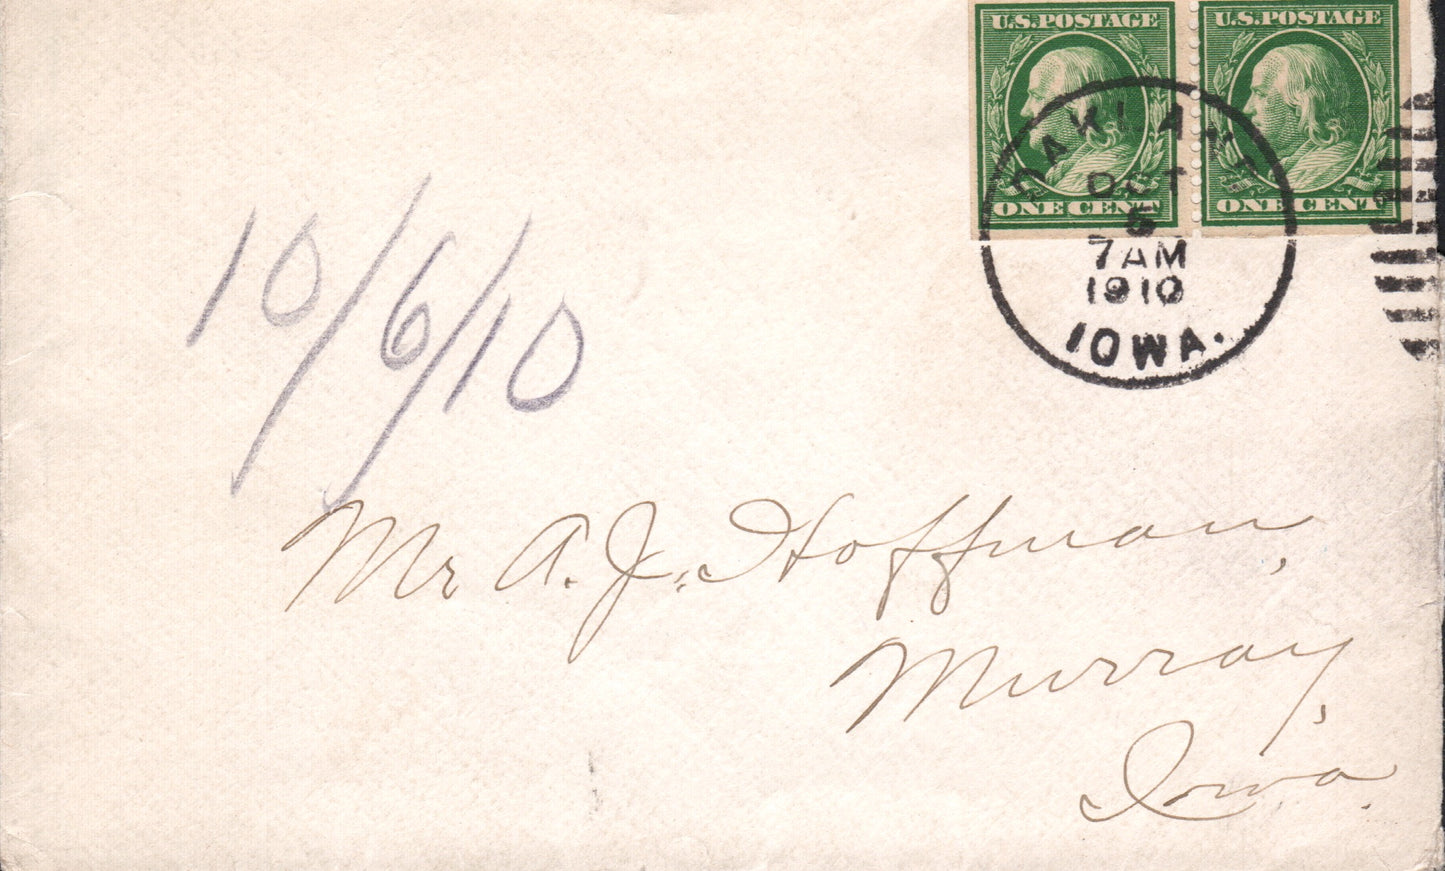 U.S.POSTAGE U.S.POSTAGE
ONE CENT ONE CENT
OAKLAND
OCT
5
7 AM
1910
IOWA.
10/6/10
Mr A. J. Hoffman,
Murray,
Iowa.